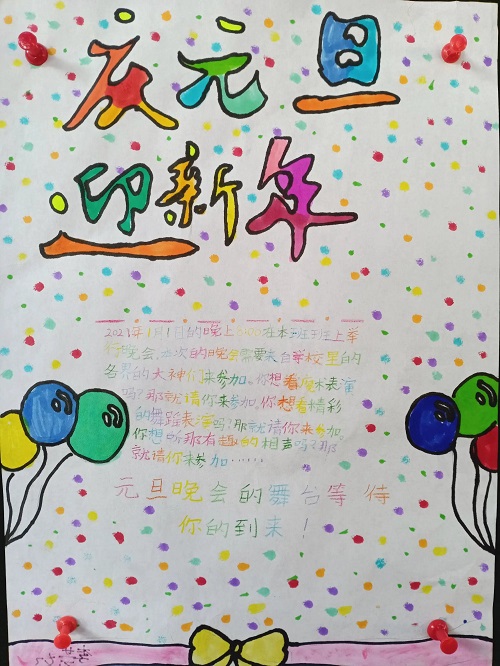 庆元旦
迎新年
2021年1月1日的晚上6:00在本班班上举
行晚会,这次的晚会需要来自学校里的
各界的大神们来参加。你想看魔术表演
吗?那就请你来参加。你想看精彩
的舞蹈表演吗?那就请你来参加。
你想听那有趣的相声吗?那
就请你来参加……
元旦晚会的舞台等待
你的到来!